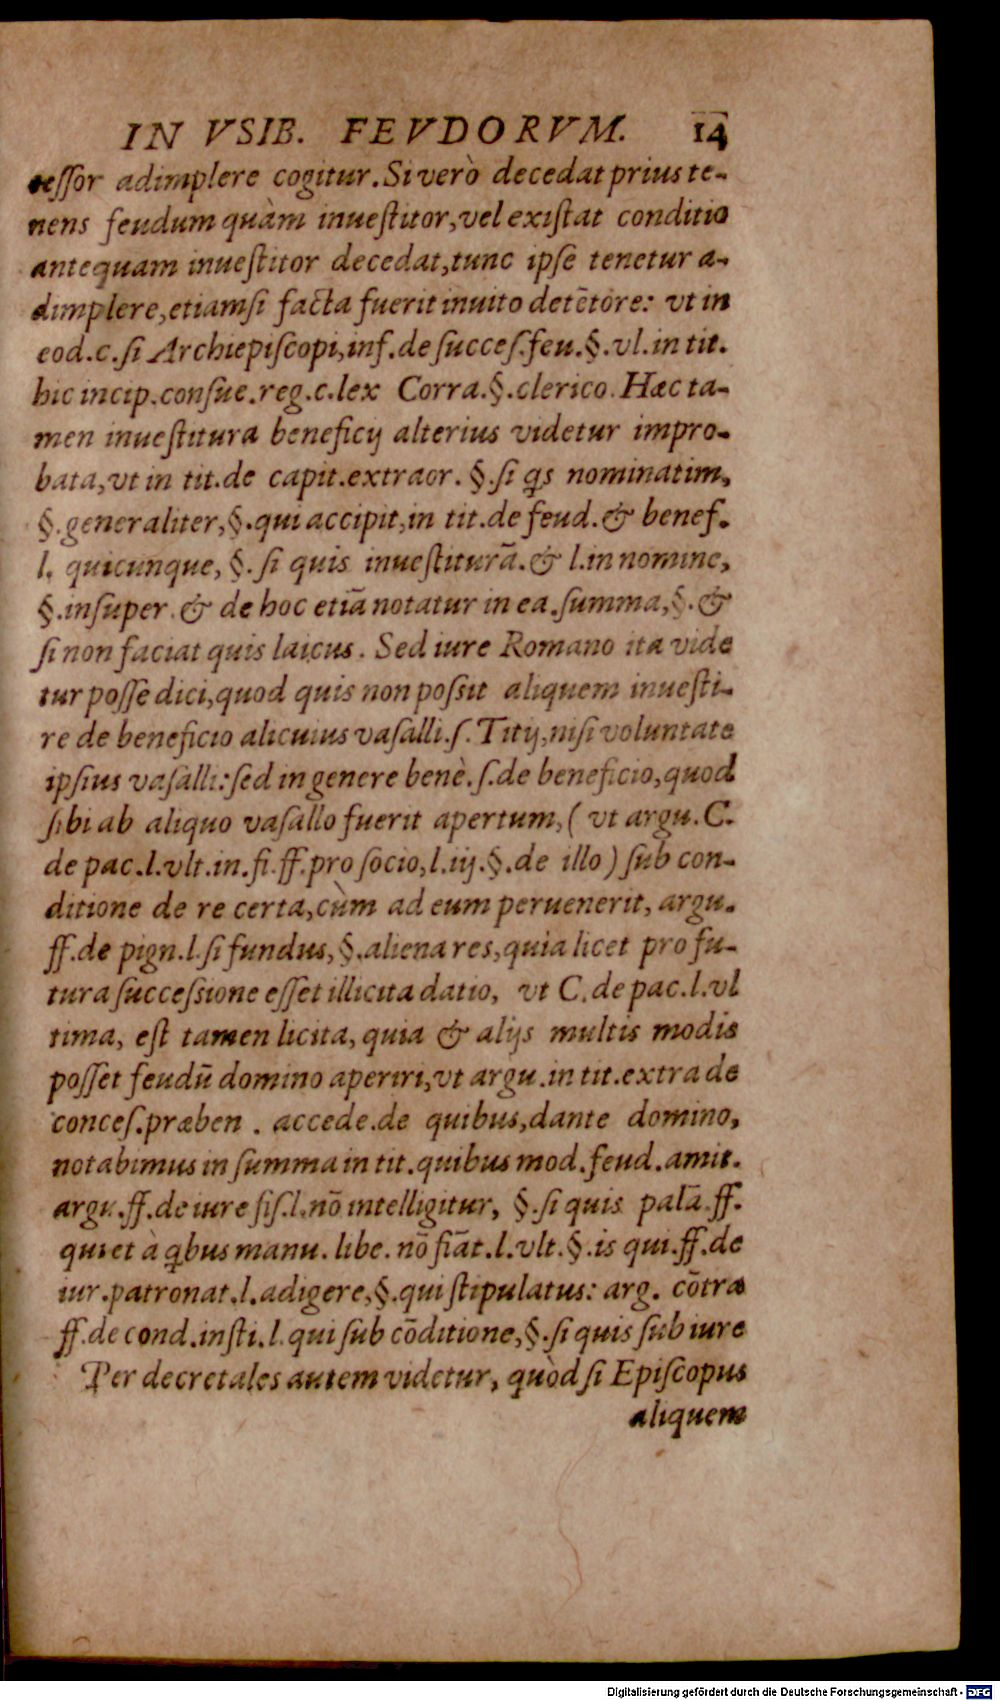 IN VSIB. FEVDORVM. 14
cessor adimplere cogitur. Si verò decedat prius te-
nens feudum quàm inuestitor, vel existat conditio
antequam inuestitor decedat, tunc ipse tenetur a-
dimplere, etiamsi facta fuerit inuito detētore: vt in
eod. c. si Archiepiscopi, inf. de succes. feu. §. vl. in tit.
hic incip. consue. reg. c. lex Corra. §. clerico. Hæc ta-
men inuestitura beneficij alterius videtur impro-
bata, vt in tit. de capit. extraor. §. si qs nominatim,
§. generaliter, §. qui accipit, in tit. de feud. & benef.
l. quicunque, §. si quis inuestiturā. & l. in nomine,
§. insuper. & de hoc etiā notatur in ea. summa, §. &
si non faciat quis laicus. Sed iure Romano ita vide
tur posse dici, quod quis non possit aliquem inuesti-
re de beneficio alicuius vasalli. s. Titij, nisi voluntate
ipsius vasalli: sed in genere benè. s. de beneficio, quod
sibi ab aliquo vasallo fuerit apertum, ( vt argu. C.
de pac. l. vlt. in. fi. ff. pro socio, l. iij. §. de illo ) sub con-
ditione de re certa, cùm ad eum peruenerit, argu.
ff. de pign. l. si fundus, §. aliena res, quia licet pro fu-
tura successione esset illicita datio, vt C. de pac. l. vl
tima, est tamen licita, quia & alijs multis modis
posset feudū domino aperiri, vt argu. in tit. extra de
conces. præben. accede. de quibus, dante domino,
notabimus in summa in tit. quibus mod. feud. amit.
argu. ff. de iure fis. l. nō intelligitur, §. si quis palā. ff.
qui et à qbus manu. libe. nō fiāt. l. vlt. §. is qui. ff. de
iur. patronat. l. adigere, §. qui stipulatus: arg. cōtra
ff. de cond. insti. l. qui sub cōditione, §. si quis sub iure
Per decretales autem videtur, quòd si Episcopus
aliquem
Digitalisierung gefördert durch die Deutsche Forschungsgemeinschaft - DFG